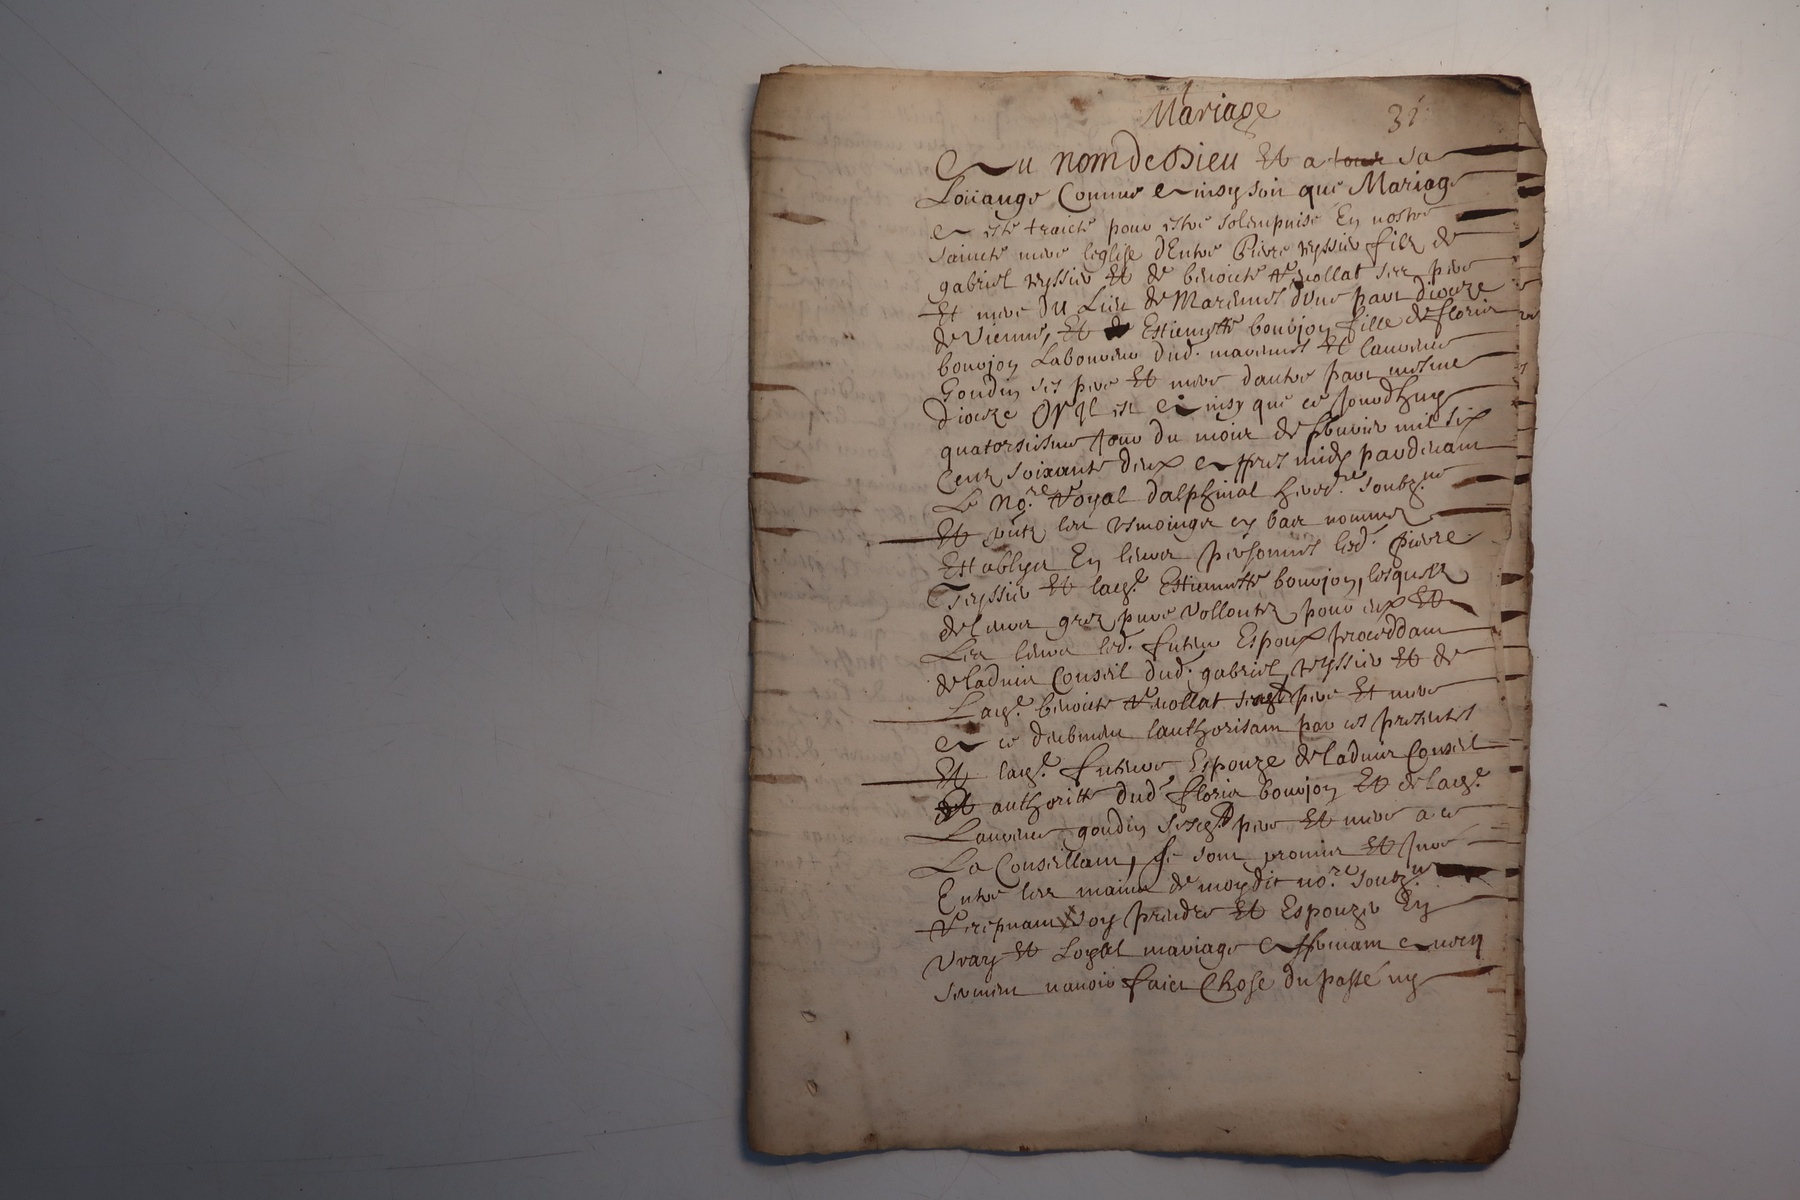 Mariage
31
Au nom de Dieu Et a tour sa
Loüange Comme Ainsy soit que Mariage
A esté traicté pour estre solempnisé En nostre
saincte mere leglise dEntre Pierre teyssier filz de
gabriel teyssier Et de benoicte Revollat ses pere
Et mere du Lieu de Marennes dune part dioceze
de Vienne, Et de Estiennette bourjon fille de floris
bourjon Laboureur dud. marennes Et laurence
Goudin ses pere Et mere dautre part mesme
dioceze Or Il est Ainsy que ce Jourdhuy
quatorsiesme Jour du mois de febvrier mil six
Centz soixante deux Appres midy pardevant
Le No.re Royal dalphinal hered.re soubz.né
Et pntz les tesmoingz en bas nommez
Establys En leurs personnes led. pierre
Teyssier Et lad. Estiennette bourjon, lesquelz
de leurs grez pure vollontez pour eux Et
Les leurs led. futeur Espoux proceddant
de ladvis Conseil dud. gabriel teyssier Et de
Lad. benoicte Revollat sesd. pere Et mere
A ce deubment lauthorisant par ces presentes
Et lad. future Espouze de ladvis Conseil
Et authoritte dud. floris bourjon Et de lad.
Laurence goudin sesd. pere Et mere a ce
La Conseillant, se sont promis Et Juré
Entre les mains de moydit no.re soubz.né
Recepvant soy prendre Et Espouzer En
vray Et Loyal mariage Affirmant Avecq
serment navoir faict Chose du passé ny